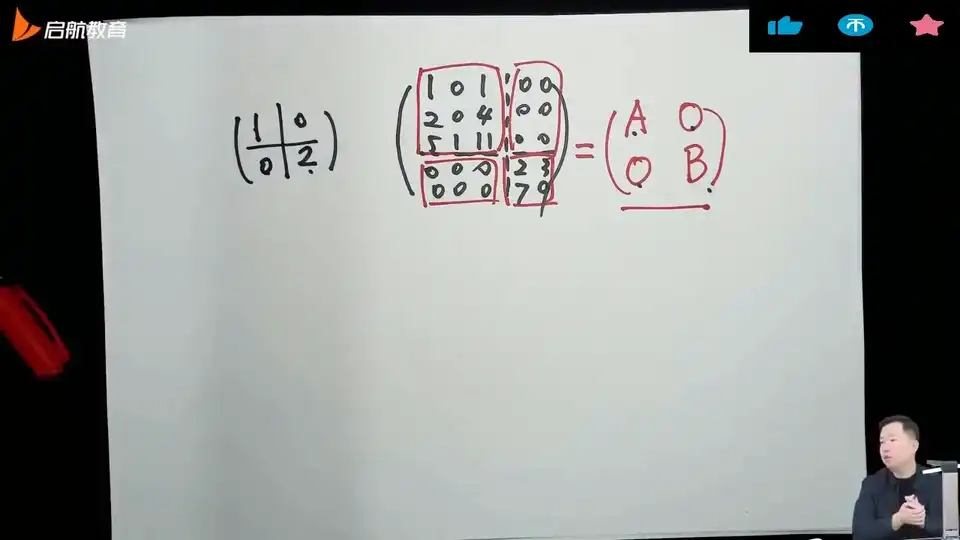 启航教育
1 0
0 2
1 0 1 0 0
2 0 4 0 0
5 1 11 0 0
0 0 0 2 3
0 0 0 7 9
=
A O
O B